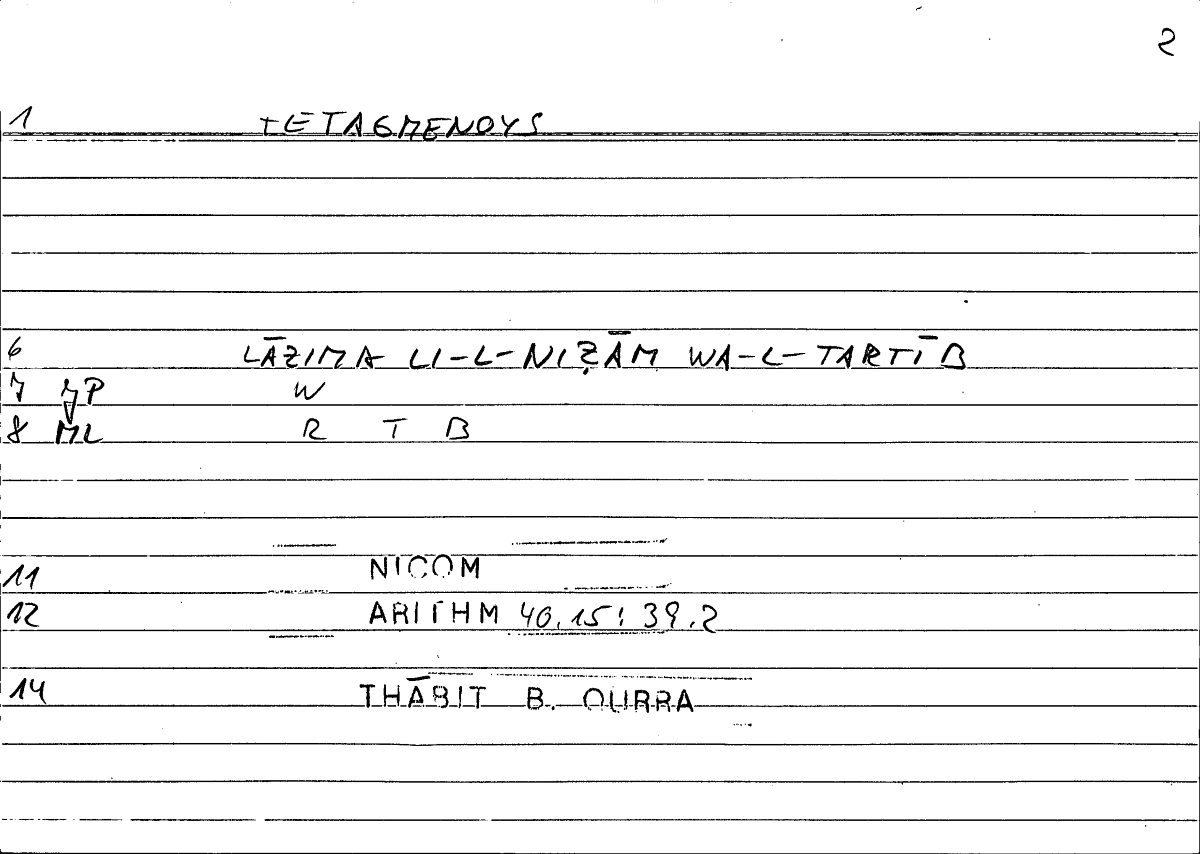 2
1 TETAGMENOYS
6 LĀZIMA LI-L-NIẒĀM WA-L-TARTĪB
7 JP W
8 ML R T B
11 NICOM
12 ARITHM 40.15: 39.2
14 THĀBIT B. QURRA